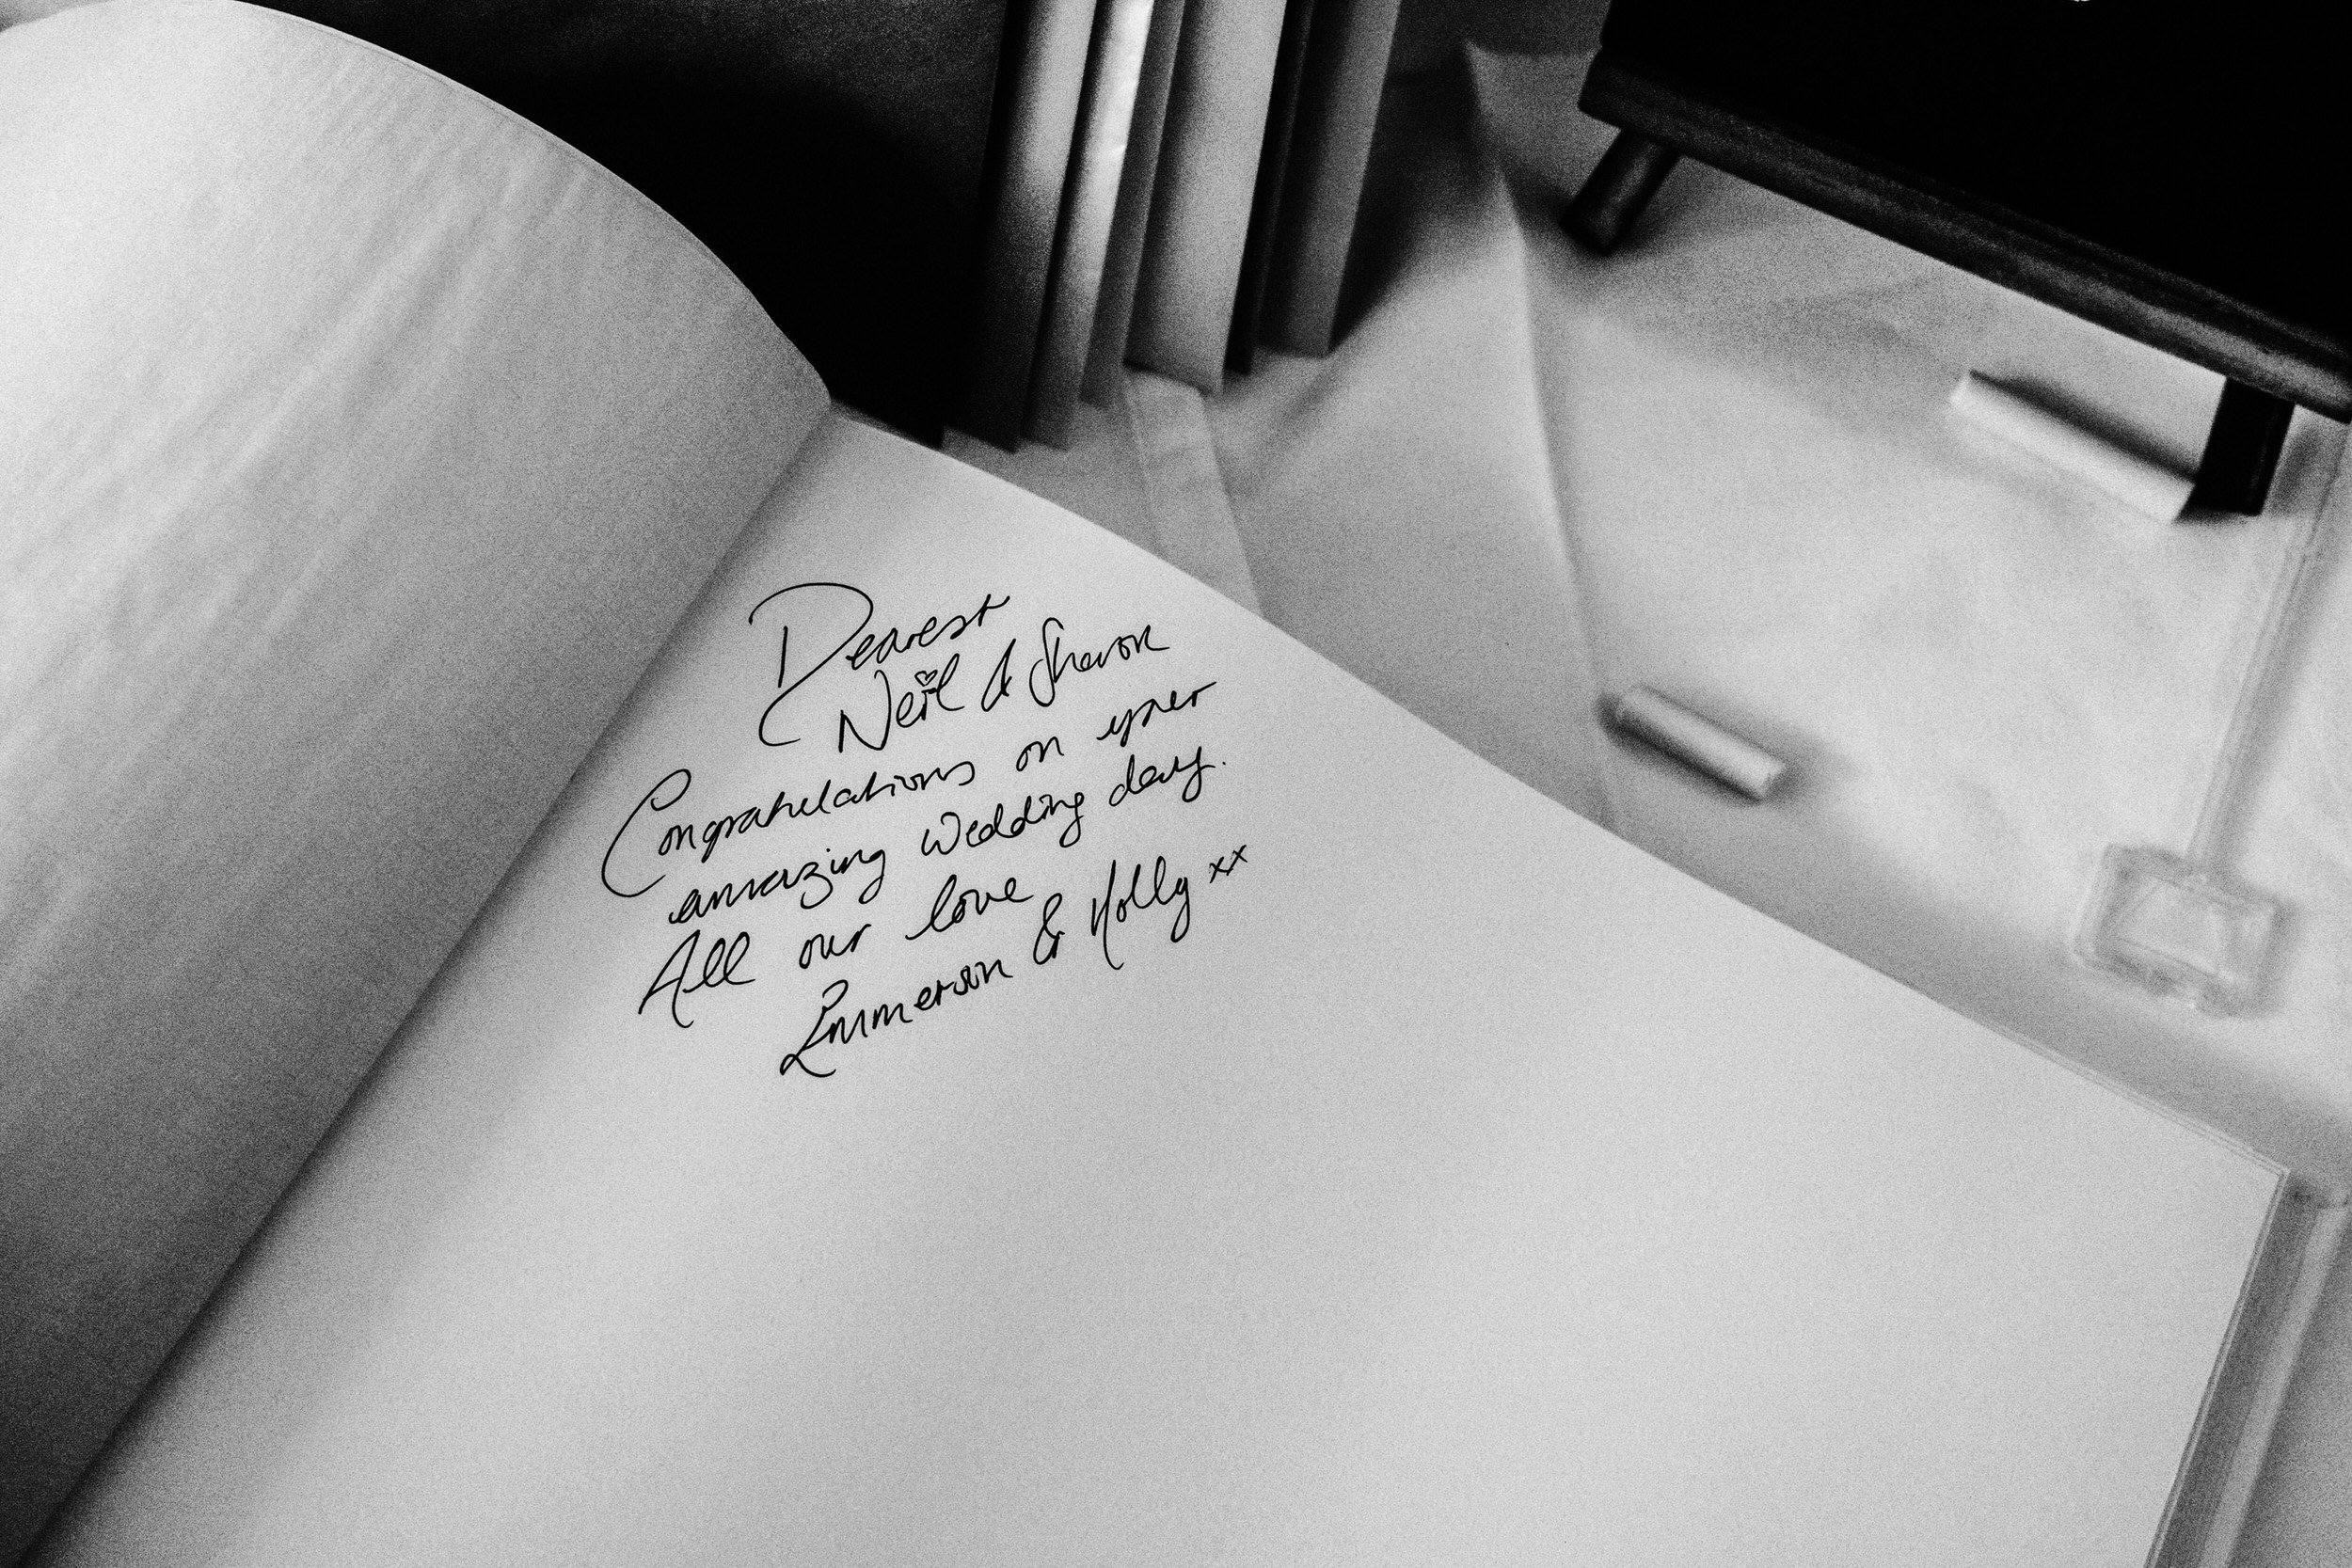 Dearest
Neil & Sharon
Congratulations on your
amazing Wedding day.
All our love
Emmerson & Holly xx